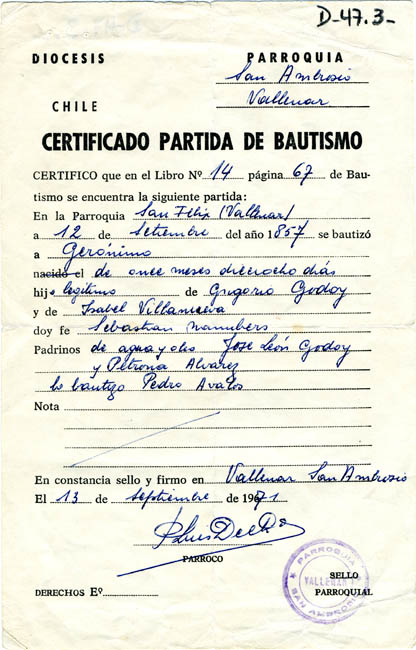 D-47.3-
DIOCESIS PARROQUIA
San Ambrosio
CHILE Vallenar
CERTIFICADO PARTIDA DE BAUTISMO
CERTIFICO que en el Libro Nº 14 página 67 de Bau-
tismo se encuentra la siguiente partida:
En la Parroquia San Félix (Vallenar)
a 12 de Setiembre del año 1857 se bautizó
a Gerónimo
nacido el de once meses dieciocho días
hijo legítimo de Grigorio Godoy
y de Isabel Villanueva
doy fe Sebastian
Padrinos de agua y oleo Jose León Godoy
y Petrona Alvarez
lo bautizo Pedro Avalos
Nota
En constancia sello y firmo en Vallenar San Ambrosio
El 13 de septiembre de 1971
PARROCO
DERECHOS Eº
SELLO
PARROQUIAL
PARROQUIA
VALLENAR
SAN AMBROSIO